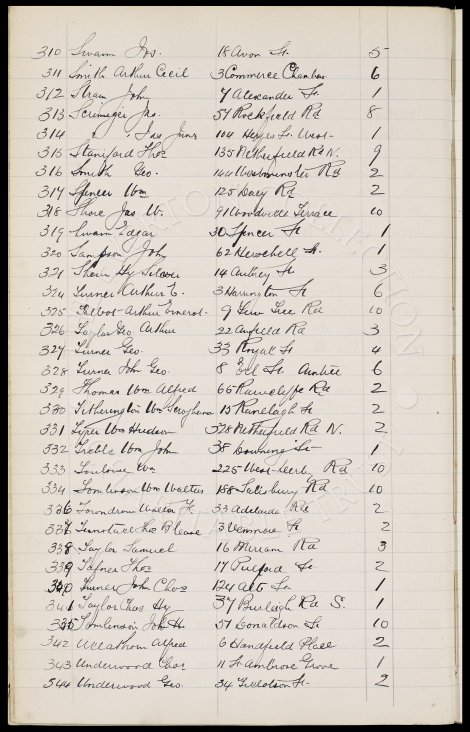 310 Swann Jos. 18 Avon St. 5
311 Smith Arthur Cecil 3 Commerce Chambers 6
312 Stram John 7 Alexander St 1
313 Scrimiger Jas. 57 Rockfield Rd 8
314 " Jas Junr 104 Heyes St. West. 1
315 Staniford Thos 135 Netherfield Rd N. 9
316 Smith Geo. 144 Westminster Rd 2
317 Spencer Wm 125 Dacy Rd 2
318 Shore Jas. W. 9 Woodville Terrace 10
319 Swann Edgar 30 Spencer St 1
320 Sampson John 62 Herschell St. 1
321 Hy 14 Aubrey St 3
324 Turner Arthur E. 3 Harrington St 6
325 Talbot Arthur Ernest. 9 Yew Tree Rd 10
326 Taylor Geo Arthur 22 Anfield Rd 3
327 Turner Geo. 33 Royal St 4
328 Turner John Geo. 8 St Aintree 6
329 Thomas Wm Alfred 65 Rawcliffe Rd 2
330 Titherington Wm 15 Ranelagh St 2
331 Wm Hudson 378 Netherfield Rd N. 2
332 Treble Wm John 38 Downing St 1
333 Toulouse Wm 225 West Derb Rd 10
334 Tomlinson Wm Walter 158 Salisbury Rd 10
336 Walter H. 33 Adelaide Rd 2
337 Thos Blease 3 Venmore St 2
338 Taylor Samuel 16 Miriam Rd 3
339 Tafner Thos 17 Pulford St 2
340 Turner John Chas 124 Alt St 1
341 Taylor Chas Hy 37 Burleigh Rd S. 1
335 Tomlinson John H. 57 Donaldson St 10
342 Ullathorn Alfred 6 Handfield Place 2
343 Underwood Chas 11 St Ambrose Grove 1
344 Underwood Geo. 34 Tillotson St. 2